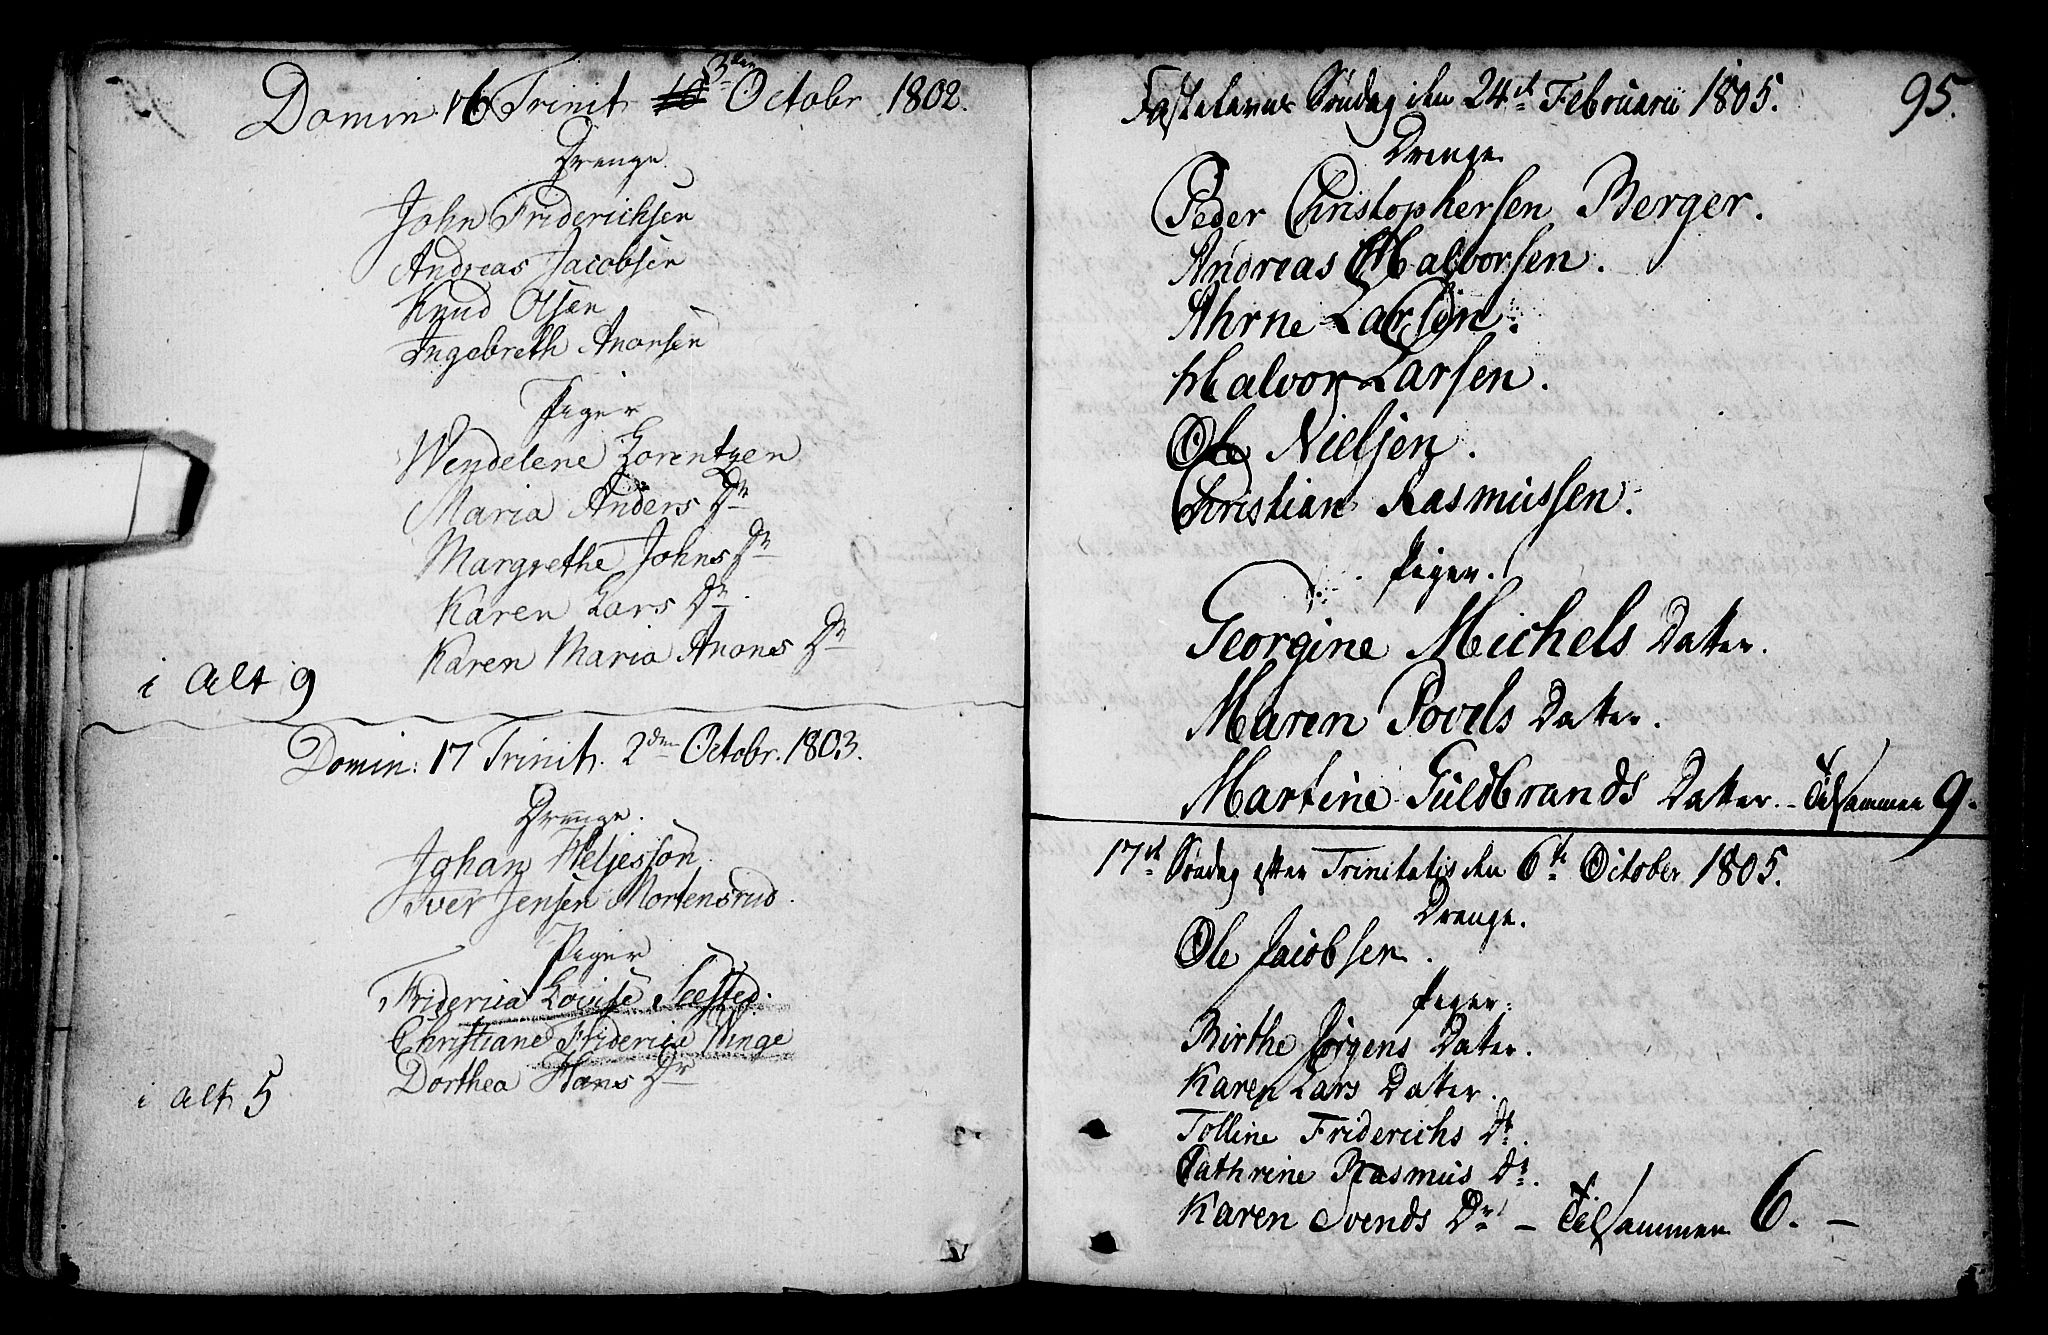 Domin 16 Trinit 3den October 1802.
Drenge
John Friderichsen
Andreas Jacobsen
Knud Olsen
Ingebreth Anonsen
Piger
Wendelene Lorentzen
Maria Anders Dr
Margrethe Johns Dr
Karen Lars Dr
Karen Maria Anones Dr
i Alt 9
Domin: 17 Trinit. 2den Octobr. 1803.
Drenge.
Johan Heljesson
Iver Jensen Mortensrud.
Piger
Fridericia Louise Seested.
Christiane Friderica Winge
Dorthea Hans Dr
i Alt 5
95.
Fastelavns Søndag den 24de Februarii 1805.
Drenge
Peder Christophersen Berger.
Andreas Halvorsen.
Ahrne Larsen.
Halvor Larsen.
Ole Nielsen.
Christian Rasmussen.
Piger.
Georgine Michels Datter.
Maren Povels Datter.
Martine Guldbrands Datter. - Tilsammen 9.
17de Søndag efter Trinitatis den 6te October 1805.
Drenge.
Ole Jacobsen.
Piger:
Birthe Jørgens Datter.
Karen Lars Datter.
Tolline Friderichs Dr.
Cathrine Rasmus Dr.
Karen Svends Dr - Tilsammen 6. -